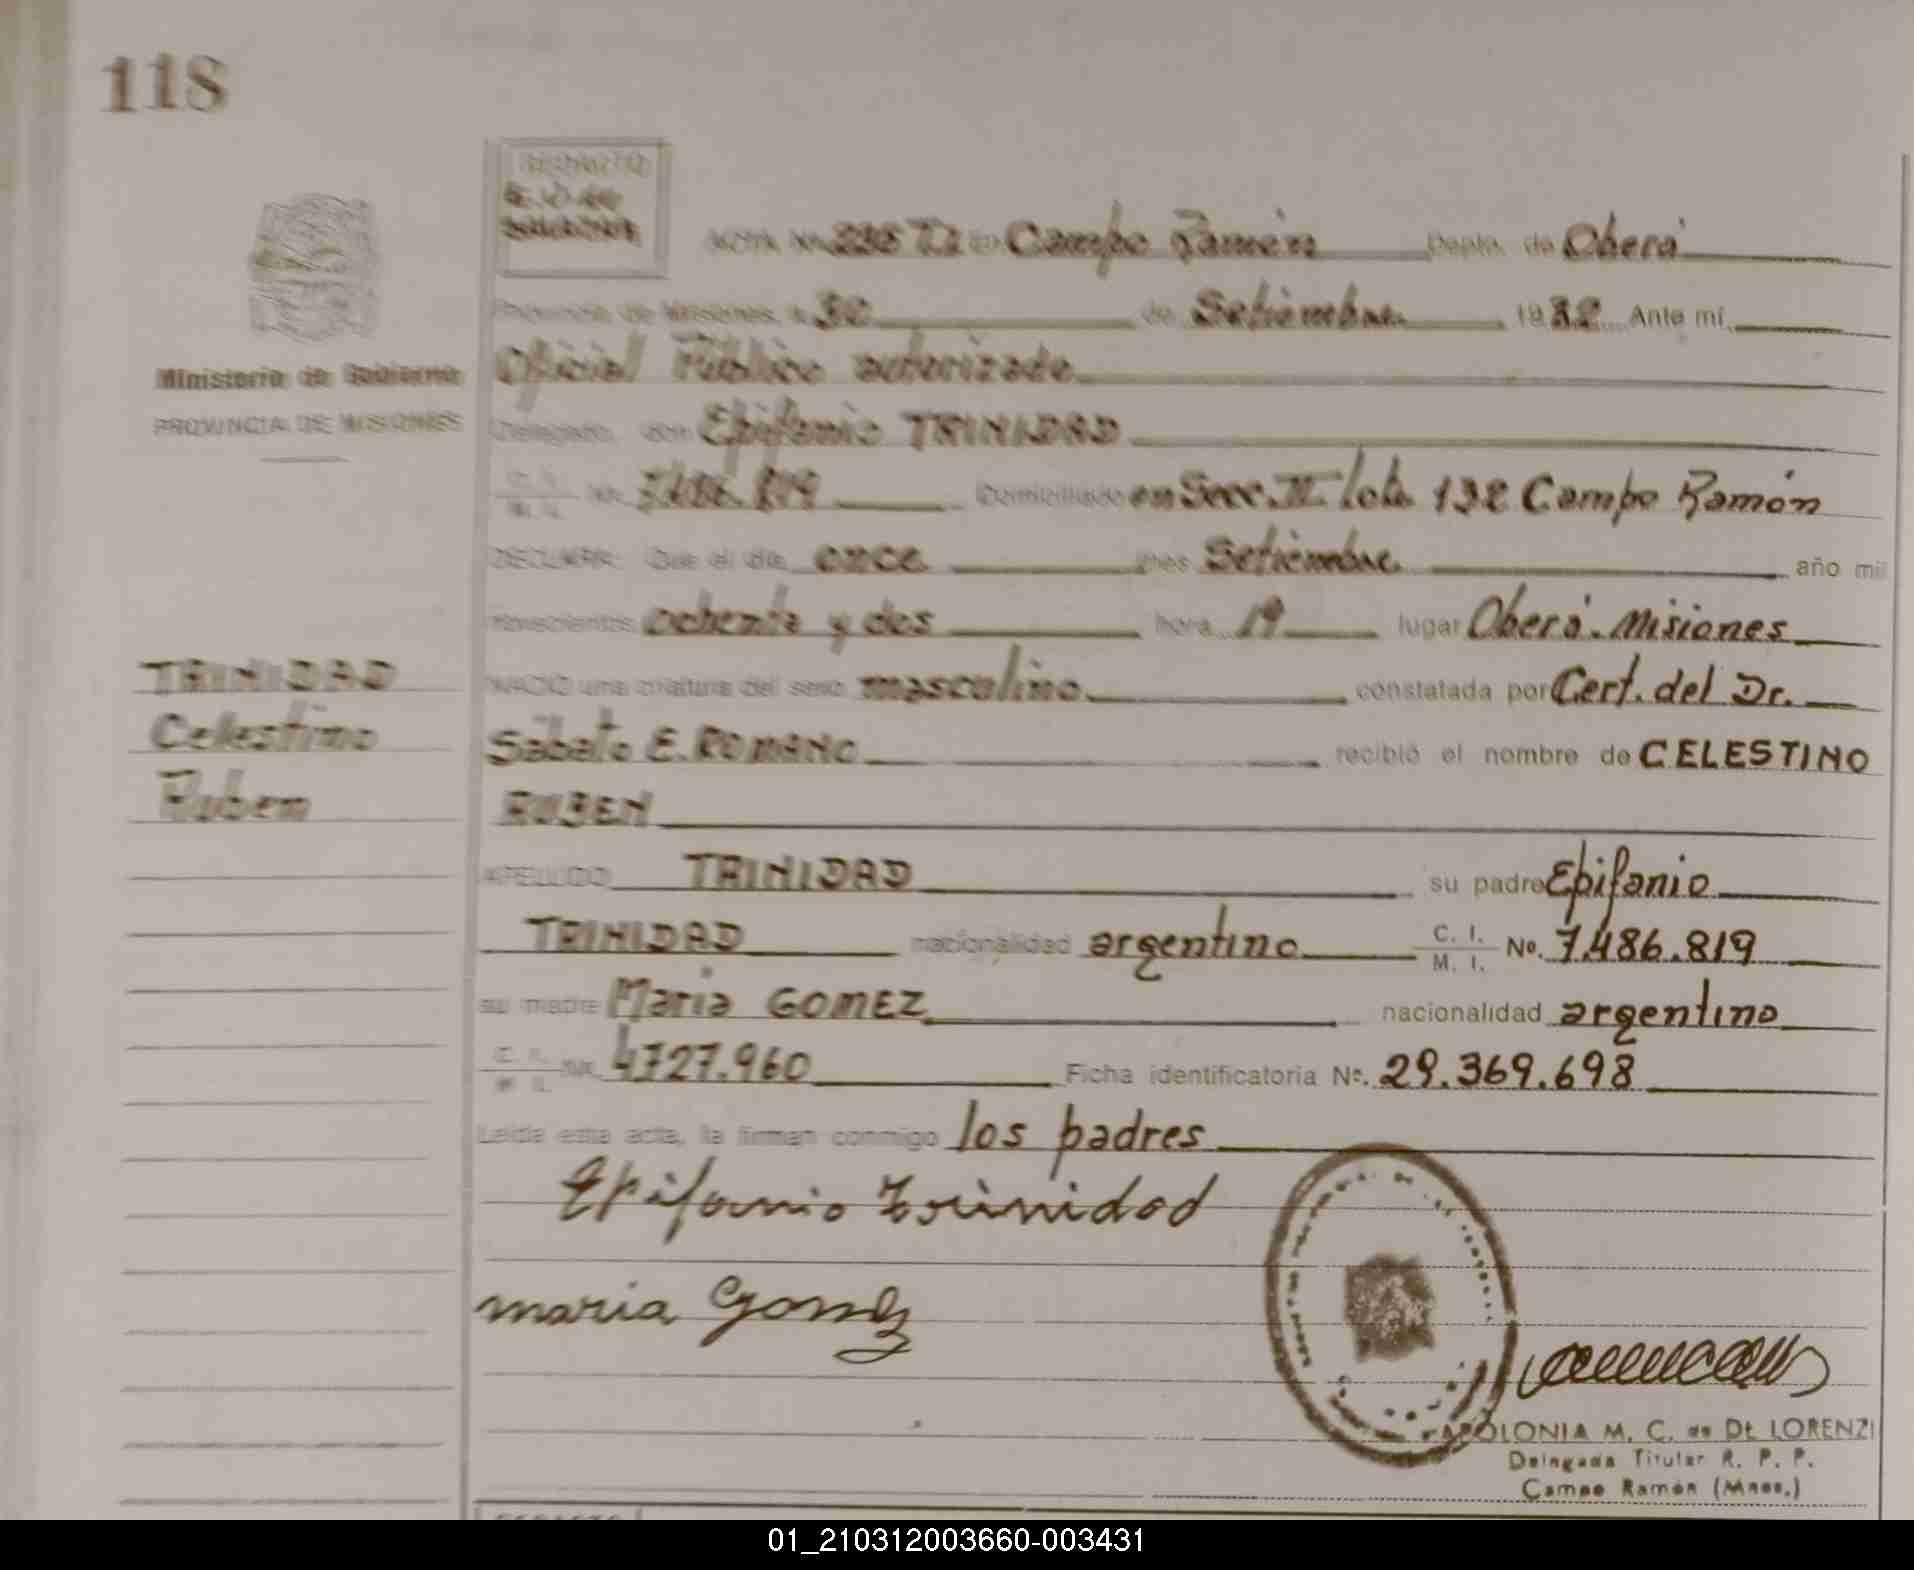 118
ACTA No. 235 TI en Campo Ramón Depto. de Oberá
Provincia de Misiones, a 30 de Setiembre 1982 Ante mí,
Oficial Público autorizado
Delegado, don Epifanio TRINIDAD
Ministerio de Gobierno
PROVINCIA DE MISIONES
C. I.
M. I. No. 7.486.819 Domiciliado en Secc. II lote 132 Campo Ramón
DECLARA: Que el día once mes Setiembre año mil
novecientos ochenta y dos hora 19 lugar Oberá. Misiones
TRINIDAD
Celestino
Ruben
NACIO una criatura del sexo masculino constatada por Cert. del Dr.
Sábato E. ROMANO recibió el nombre de CELESTINO
RUBEN
APELLIDO TRINIDAD su padre Epifanio
TRINIDAD nacionalidad argentino C. I.
M. I. No. 7.486.819
su madre Maria GOMEZ nacionalidad argentino
C. I.
M. I. No. 4.727.960 Ficha identificatoria No. 29.369.698
Leída esta acta, la firman conmigo los padres
Epifanio Trinidad
maria Gomez
APOLONIA M. C. de DE LORENZI
Delegada Titular R. P. P.
Campo Ramón (Mnes.)
01_210312003660-003431